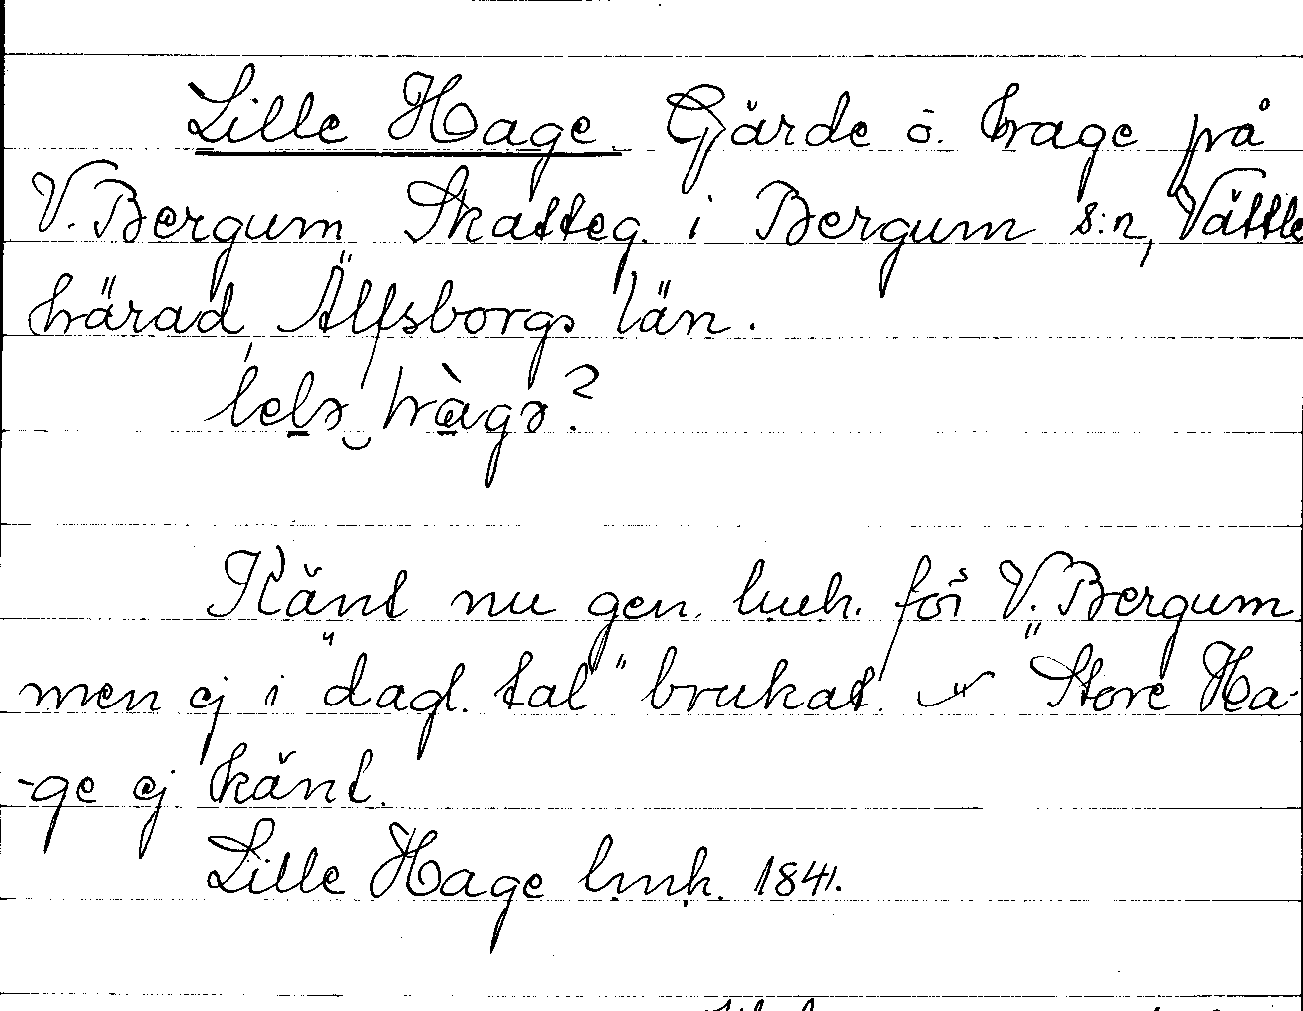 Lille Hage. Gärde o. hage på
V. Bergum Skatteg. i Bergum s:n, Vättle
härad, Älfsborgs län.
lelə hàgə?
Känt nu gen. lmk. för V. Bergum
men ej i "dagl. tal" brukat. "Store Ha-
-ge ej känt.
Lille Hage lmk. 1841.